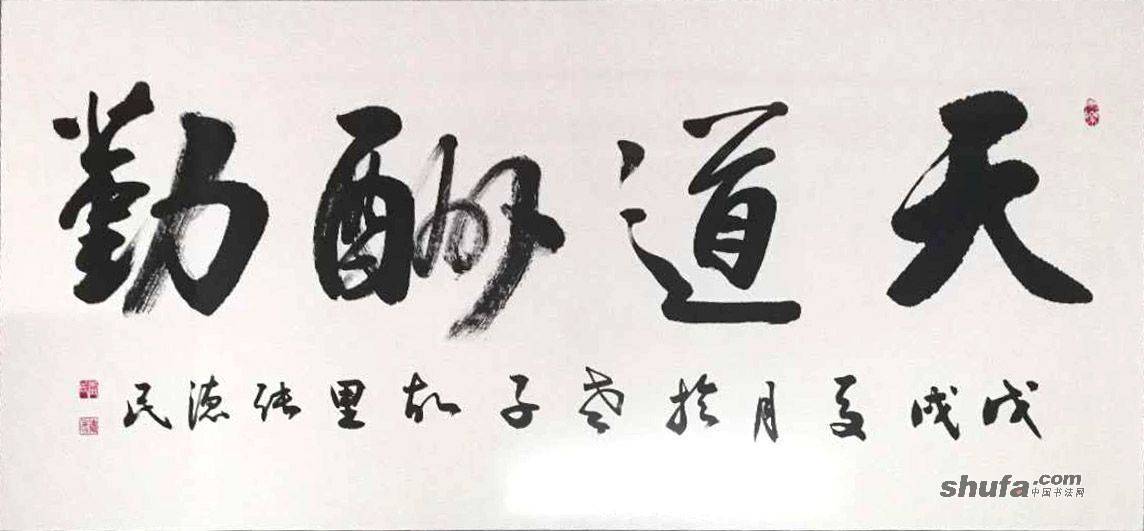 天道酬勤
戊戌夏月於老子故里张德民
shufa.com
中国书法网